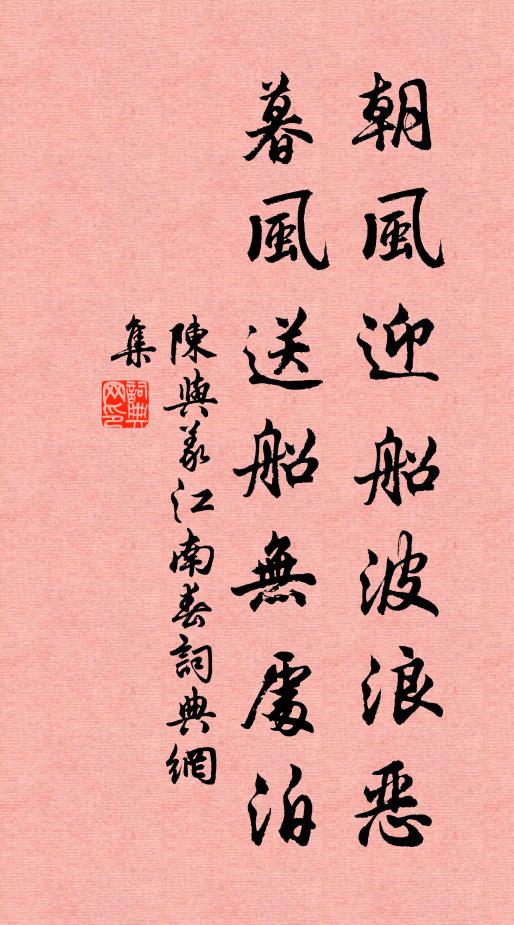 朝風迎船波浪惡
暮風送船無處泊
陳與義江南春詞典網
集
詞典
网印